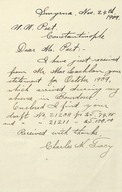 Smyrna, Nov. 29th
1909.
W. W. Peet
Constantinople
Dear Mr. Peet:
I have just received
from Mr. MacLachlan your
statement for October 1909,
which arrived during my
absence in
Enclosed I find your
draft No. 21210 for
and " 21211 "
Received with thanks
Charles W. Tracy